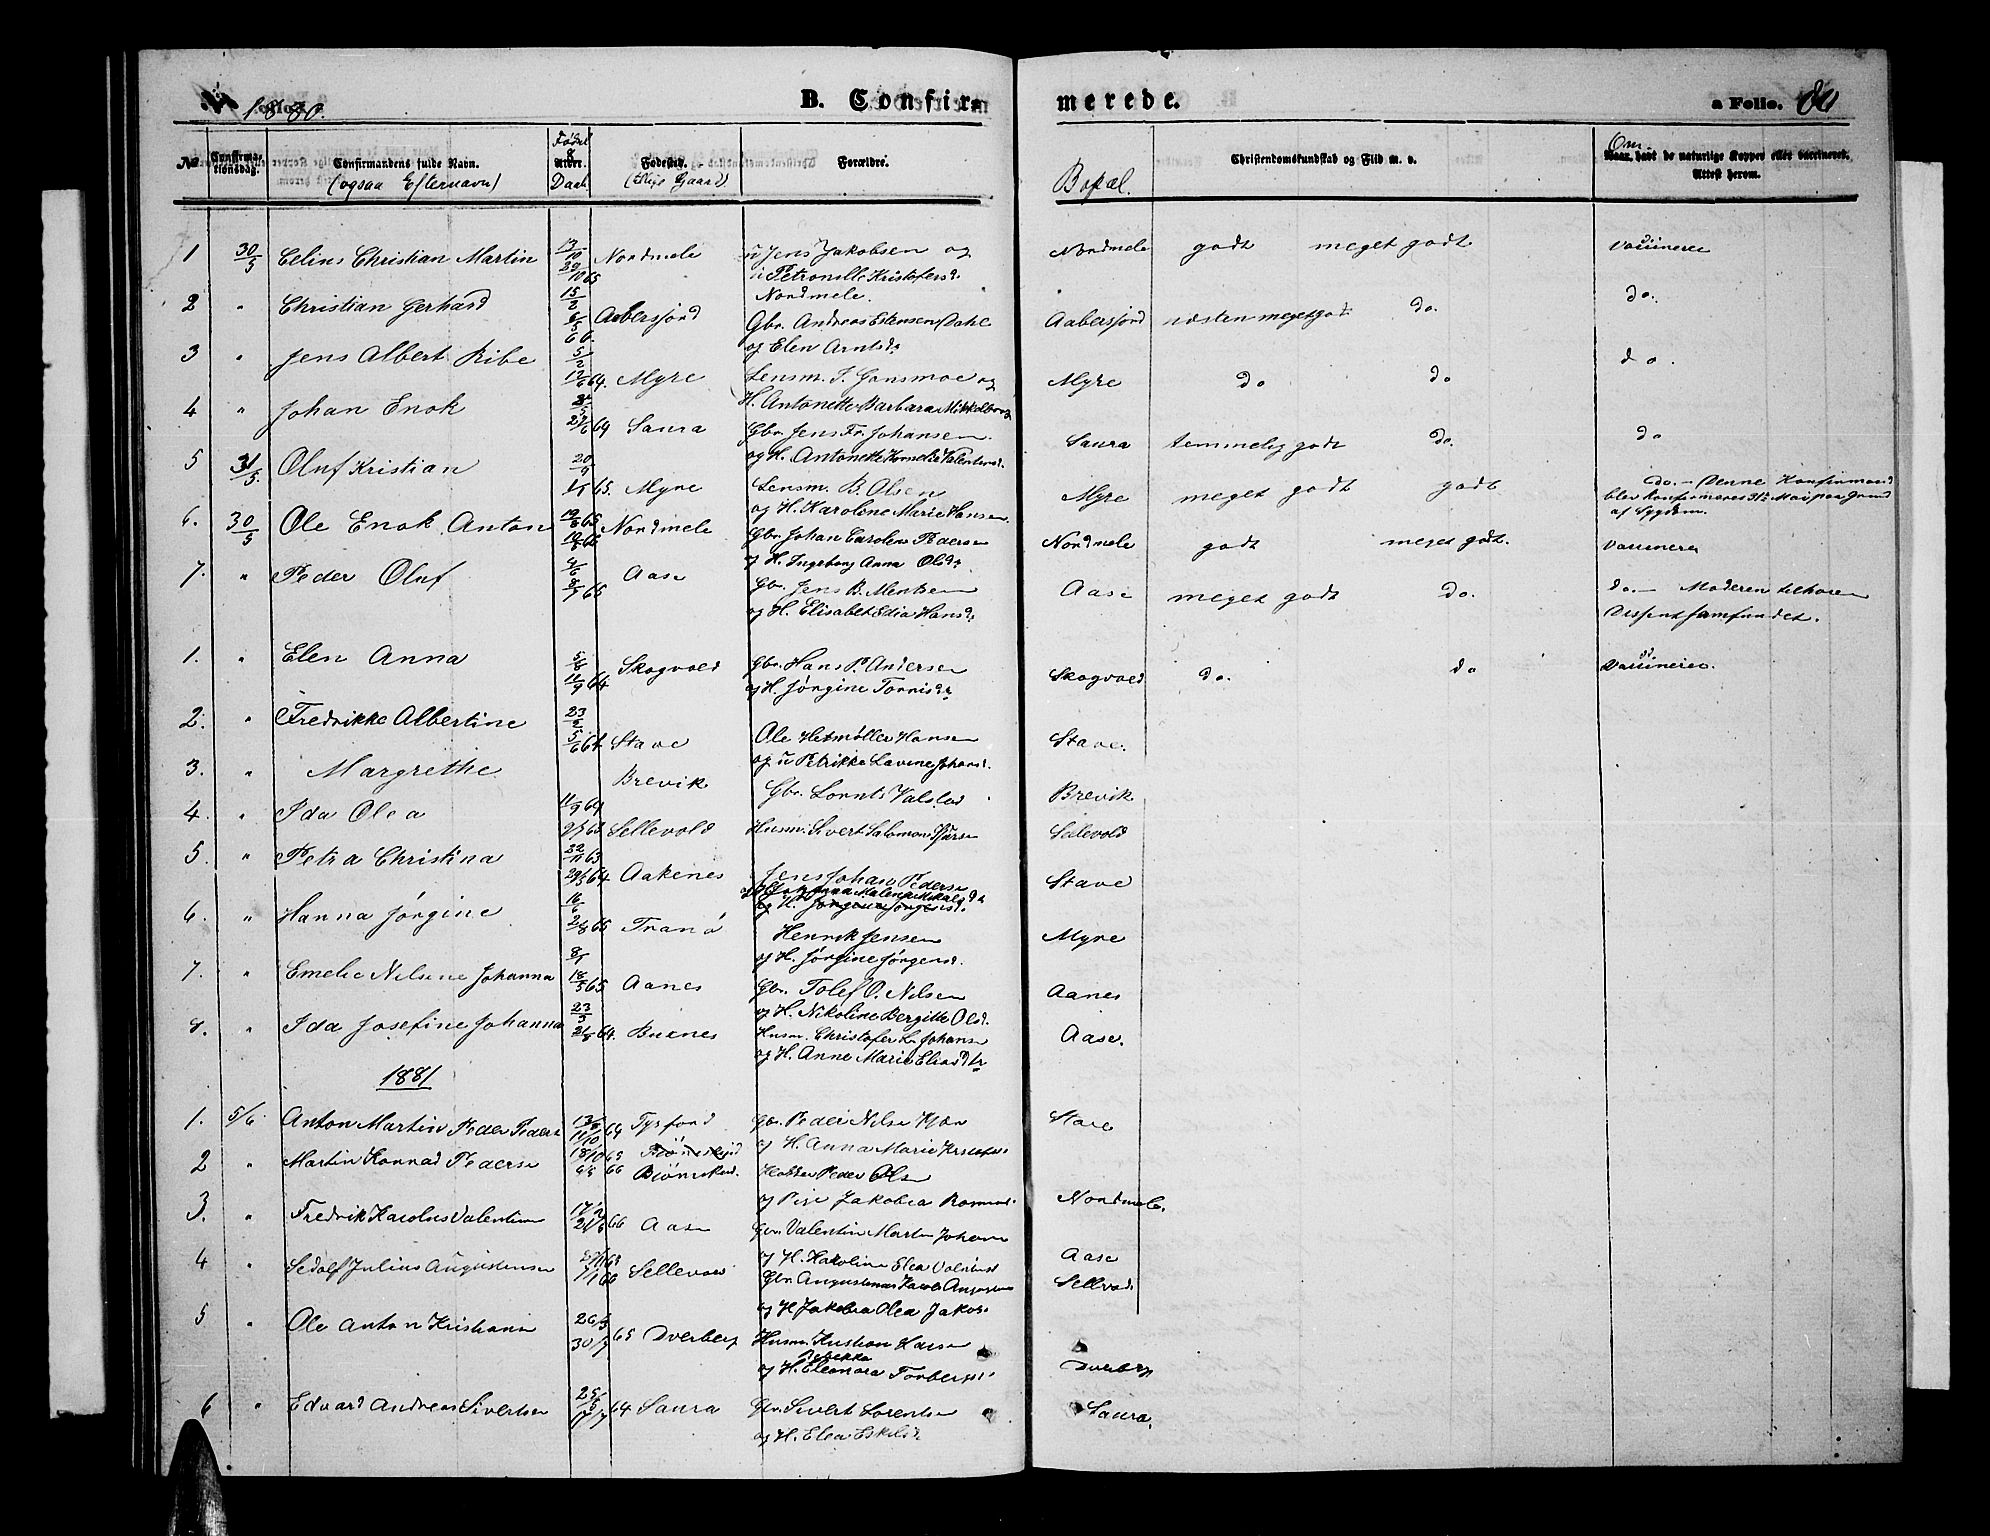 1880.
B. Confirmerede.
a Folio. 80
No
Confirmationsdag.
Confirmandens fulde Navn.
(ogsaa Efternavn)
Fødsel & Daab.
Fødested.
(tillige Gaard)
Forældre.
Bopæl.
Christendomskundskab og Flid m. v.
Om
Naar, havt de naturlige Kopper eller vaccineret.
Attest herom.
1 30/5 Celius Christian Martin 13/10 29/10 65 Nordmele u Jens Jakobsen og Nordmele godt meget godt vaccineret
i Petronelle Kristofersd.
Nordmele.
2 " Christian Gerhard 15/2 Aabersjord Gbr. Andreas Estensen Dahl Aabersjord næsten meget godt do. do.
og Elen Arntsdr
3 " Jens Albert Ribe 5/2 12/6 64. Myre Lensm. J. Gansmoe og Myre do do do.
H. Antonette Barbara Mikkelborg
4 " Johan Enok 64 Saura Gbr. Jens Fr. Johansen Saura temmelig godt do. do
og H. Antonette Kornelia Valentinsd.
5 31/5 Oluf Kristian 20/9 65. Myre Lensm. B. Olsen Myre meget godt godt do. - Denne Konfirmand
og H. Karoline Marie Hansen. blev konfirmeret 31te Mai paa grund
af Sygdom.
6. 30/5 Ole Enok Anton Nordmele Gbr. Johan Carolus Pedersen Nordmele godt meget godt. vaccineret
og H. Ingeborg Anna Olsdr
7. " Peder Oluf 65 Aase Gbr. Jens B. Mentsen Aase meget godt do. do. - Moderen tilhører
og H. Elisabet Edia Hansdr Dissentsamfundet.
1. " Elen Anna 64 Skogvold Gbr. Hans P. Andersen Skogvold do. do vaccineret.
og H. Jørgine Tornisdr
2. " Fredrikke Albertine 23/2 5/6 64 Stave Ole Hetmøller Hansen Stave.
og u Petrikke Lavine Johansd.
3. " Margrethe Brevik Gbr. Lornts Valstad Brevik
4. " Ida Olea 11/9 64 Sellevold Husm. Sivert Salomon Sjursen Sellevold
5. " Petra Christina 22/11 63 64 Aakenes Jens Johan Pedersen Stave
og H. Jørgine Jørgensd.
6. " Hanna Jørgine 16/6 2/8 65 Tranø Henrik Jensen Myre
og H. Jørgine Jørgensd.
7. " Emelie Nilsine Johanna 18/5 65 Aanes Gbr. Tolef O. Nilsen Aanes
og H. Nikoline Bergitte Olsd.
8. " Ida Josefine Johanna 23/3 64. Buknes Husm. Christofer L. Johansen Aase.
og H. Anne Marie Eliasdtr
1881
1. 5/6 Anton Martin Peder Peders 64 Tysfjord Gbr. Peder Nilsen Stave
og H. Anna Marie
2 " Martin Konrad Pedersen 18/10 65 66 Bjørnskind. Peder Olsen Nordmele.
og Pige Jakobia
3. " Fredrik Karolus Valentinsen 66 Aase Gbr. Valentin Martin Johansen Aase
og H. Karoline Elea
4 " Sedolf Julius Augustensen Sellevold Gbr. Sellevold
og H. Jakobia Olea Jakobs.
5 " Ole Anton Kristiansen 26/3 30/7 65 Dverberg Husm. Kristian Dverberg
Rebekka
og H. Eleonora Torbergs.
6 " Edvard Andreas Sivertsen 64 Saura Gbr. Sivert Lorentsen Saura.
og H. Elea Eskilsdr